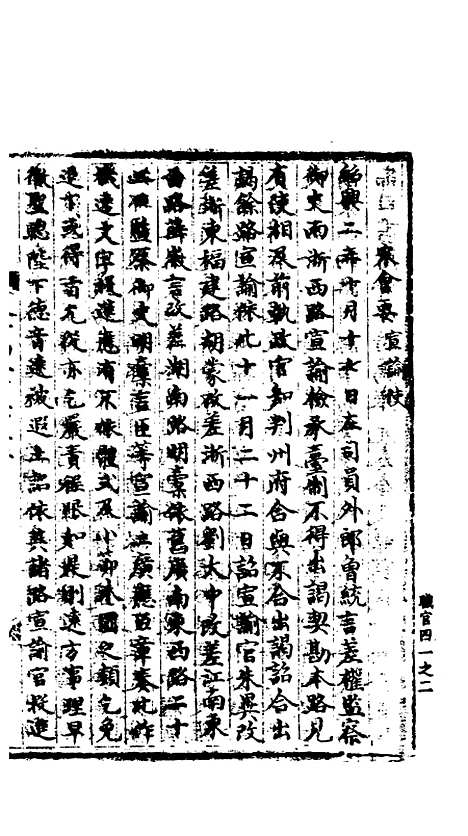 宋會要 宣諭使
紹興二年十月十六日左司員外郎曾統言差權監察
御史兩浙西路宣諭檢承臺制不得出謁契勘本路見
有使相及前執政官知判州府合與不合出謁詔合出
謁餘路宣諭依此十一月二十二日詔宣諭官朱異改
差浙東福建路胡蒙改差浙西路劉大中改差江南東
西路薛徽言改差湖南路明橐依舊廣南東西路二十
五日監察御史明橐言臣等宣諭二廣應臣章奏比昨
投進文字務違應有不依體式及小節未圓之類乞免
退卞或得旨允從亦乞嚴責程限如提刪遠方事理早
徹聖聽陛下德音速被遐土詔依其諸路宣諭官投進
職官四一之二